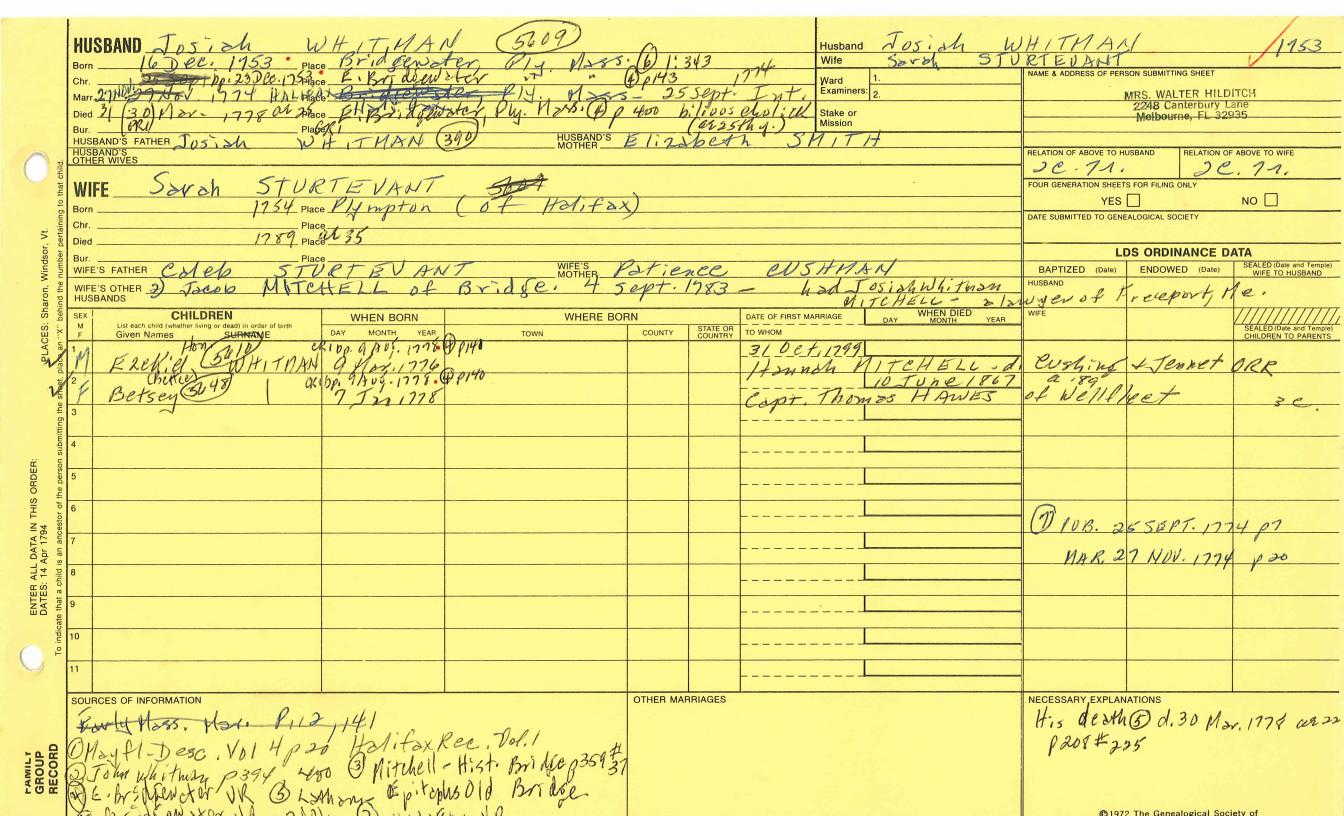 HUSBAND Josiah WHITMAN 5609
Born 16 Dec. 1753 Place Bridgewater, Ply. Mass. (6) 1:343
Chr. bp. 23 Dec. 1753 Place E. Bridgewater " " (4) p143 1774
Marr. 27 Nov 1774 HALIFAX Bridgewater Ply. Mass - 25 Sept. Int.
Died 31 (30) Mar. 1778 Place E. Bridgewater, Ply. Mass. (4) p 400 bilious cholick
Bur. Place (ae 25th y.)
HUSBAND'S FATHER Josiah WHITMAN 390 HUSBAND'S MOTHER Elizabeth SMITH
HUSBAND'S OTHER WIVES
WIFE Sarah STURTEVANT
Born 1754 Place Plympton (of Halifax)
Chr. Place
Died 1789 Place ae 35
Bur. Place
WIFE'S FATHER Caleb STURTEVANT WIFE'S MOTHER Patience CUSHMAN
WIFE'S OTHER HUSBANDS 2) Jacob MITCHELL of Bridge. 4 Sept. 1783 - had Josiah Whitman
MITCHELL - a lawyer of Freeport, Me.
Husband Josiah WHITMAN 1753
Wife Sarah STURTEVANT
Ward Examiners: 1.
2.
Stake or Mission
NAME & ADDRESS OF PERSON SUBMITTING SHEET
MRS. WALTER HILDITCH
2248 Canterbury Lane
Melbourne, FL 32935
RELATION OF ABOVE TO HUSBAND RELATION OF ABOVE TO WIFE
FOUR GENERATION SHEETS FOR FILING ONLY
YES NO
DATE SUBMITTED TO GENEALOGICAL SOCIETY
LDS ORDINANCE DATA
BAPTIZED (Date) ENDOWED (Date) SEALED (Date and Temple) WIFE TO HUSBAND
HUSBAND
WIFE
SEALED (Date and Temple) CHILDREN TO PARENTS
SEX M F CHILDREN WHEN BORN WHERE BORN DATE OF FIRST MARRIAGE WHEN DIED
List each child (whether living or dead) in order of birth
Given Names SURNAME DAY MONTH YEAR TOWN COUNTY STATE OR COUNTRY TO WHOM DAY MONTH YEAR
1 Hon 5610 bp. 9 Aug. 1778 (4) p140 31 Oct. 1799
M Ezekiel WHITMAN 9 Mar. 1776 Hannah MITCHELL d. Cushing & Jennet ORR
2 5648 bp. 9 Aug. 1778 (4) p140 10 June 1867 a. 89
F Betsey 7 Jan 1778 Capt. Thomas HAWES of Wellfleet
3
4
5
6
7
8
9
10
11
(7) PUB. 25 SEPT. 1774 p7
MAR. 27 NOV. 1774 p20
SOURCES OF INFORMATION
Early Mass. Mar. P.112, 141
(1) Mayfl. Desc. Vol 4 p20 Halifax Rec. Vol. 1
(2) John Whitman p394 400 (3) Mitchell - Hist. Bridge p359 #37
(4) E. Bridgewater VR (5) Latham's Epitaphs Old Bridge.
OTHER MARRIAGES
NECESSARY EXPLANATIONS
His death (5) d. 30 Mar. 1778 ae 22
p208 #225
©1972 The Genealogical Society of
PLACES: Sharon, Windsor, Vt.
To indicate that a child is an ancestor of the person submitting the sheet, place an "X" behind the number pertaining to that child.
ENTER ALL DATA IN THIS ORDER:
DATES: 14 Apr 1794
FAMILY GROUP RECORD